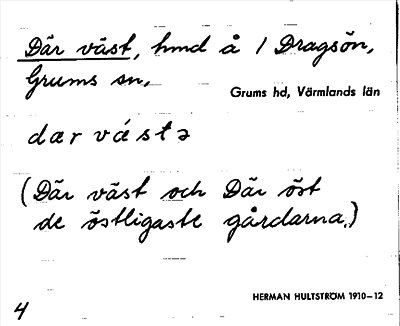 Där väst, hmd å / Dragsön,
Grums sn,
Grums hd, Värmlands län
dær vást ə
(Där väst och Där öst
de östligaste gårdarna.)
HERMAN HULTSTRÖM 1910–12
4